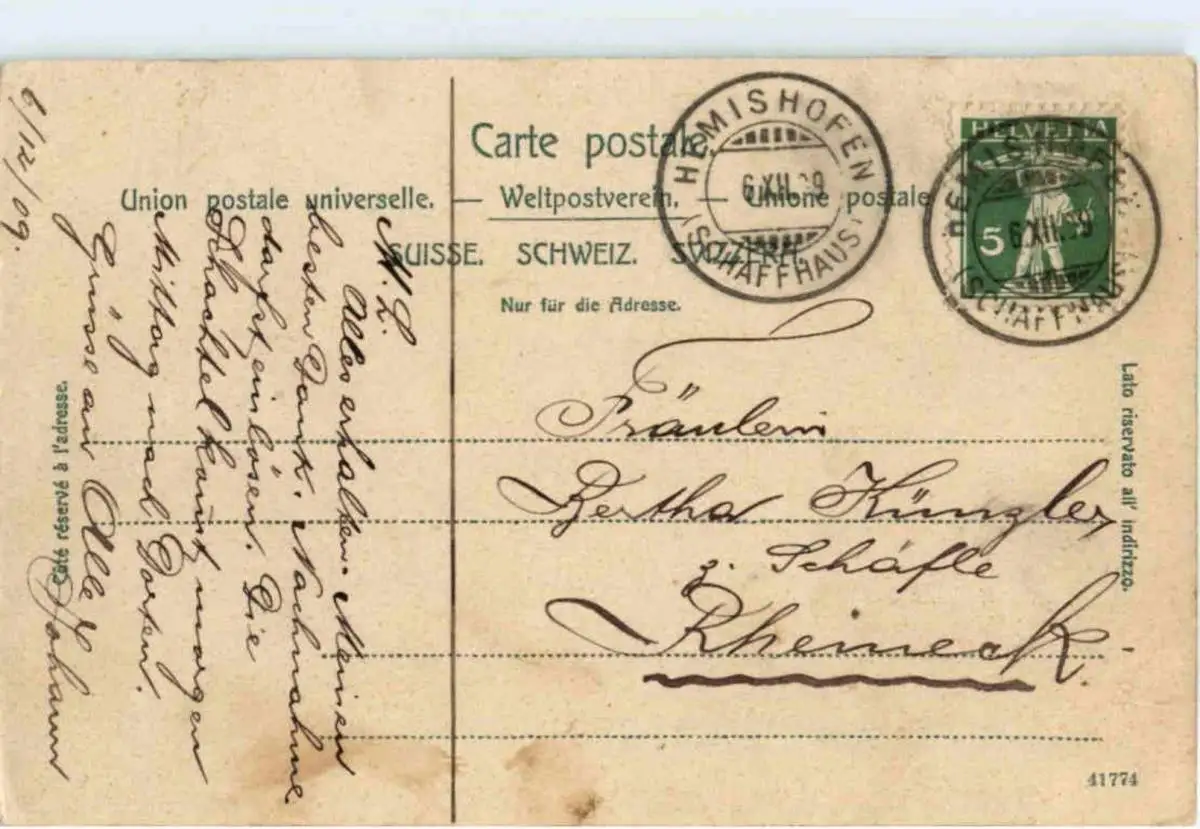 Carte postale.
Union postale universelle. — Weltpostverein. — Unione postale
SUISSE. SCHWEIZ. SVIZZERA.
Nur für die Adresse.
HEMISHOFEN
6.XII.09
(SCHAFFHAUS)
HELVETIA
5
HEMISHOFEN
6.XII.09
(SCHAFFHAUS)
Fräulein
Bertha Künzler,
z. Schäfle
Rheineck.
Lato riservato all' indirizzo.
Côté réservé à l'adresse.
41774
6/12/09.
M. L.
Alles erhalten. Meinen
besten Dank. Nachnahme
darfst einlösen. Die
Schachtel kommt morgen
Mittag nach Dorten.
Grüsse an Alle
Johann